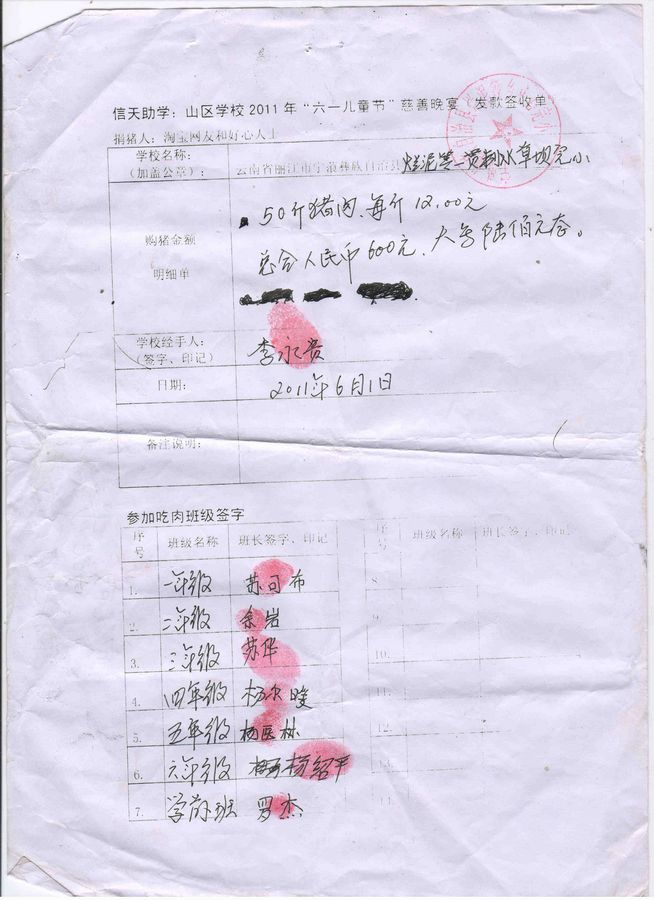 信天助学：山区学校2011年“六一儿童节”慈善晚宴 发款签收单
捐猪人：淘宝网友和好心人士
学校名称：
（加盖公章）：
云南省丽江市宁蒗彝族自治县烂泥箐
草坝完小
50斤猪肉、每斤12.00元
购猪金额
总合人民币600元、大写陆佰元
明细单
学校经手人：
（签字、印记）
李永贵
日期：
2011年6月1日
备注说明：
参加吃肉班级签字
序号 班级名称 班长签字、印记 序号 班级名称 班长签字、印记
1. 一年级 苏可布 8
2. 二年级 余岩 9
3. 三年级 苏华 10.
4. 四年级 杨 11.
5. 五年级 杨医林 12.
6. 六年级 杨绍平 13.
7. 学前班 罗杰 14